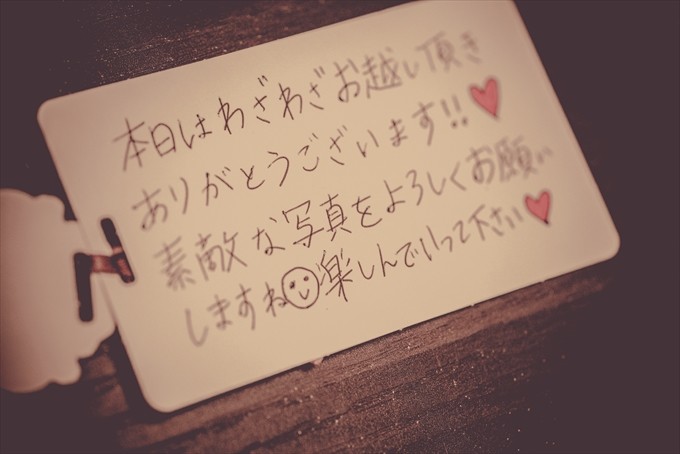 本日はわざわざお越し頂き
ありがとうございます!!♥
素敵な写真をよろしくお願い
しますね☺楽しんでいって下さい♥